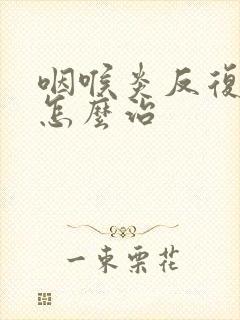 咽喉炎反復
怎麼治
一束栗花